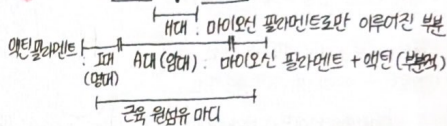 H대 : 마이오신 필라멘트로만 이루어진 부분
액틴필라멘트 : I대 A대(암대) : 마이오신 필라멘트 + 액틴(부분적)
(명대)
근육 원섬유 마디